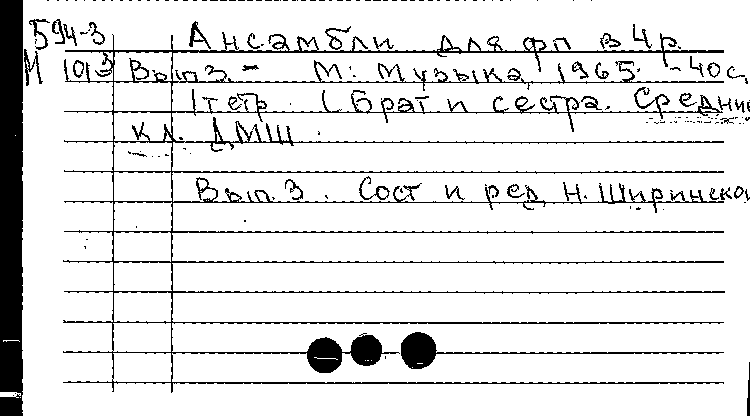 Б94-3 Ансамбли для фп в 4 р.
М 1013 Вып 3. - М: Музыка, 1965. - 40 с.
1 тетр. (Брат и сестра. Средние
кл. ДМШ.
Вып. 3. Сост и ред Н. Ширинской